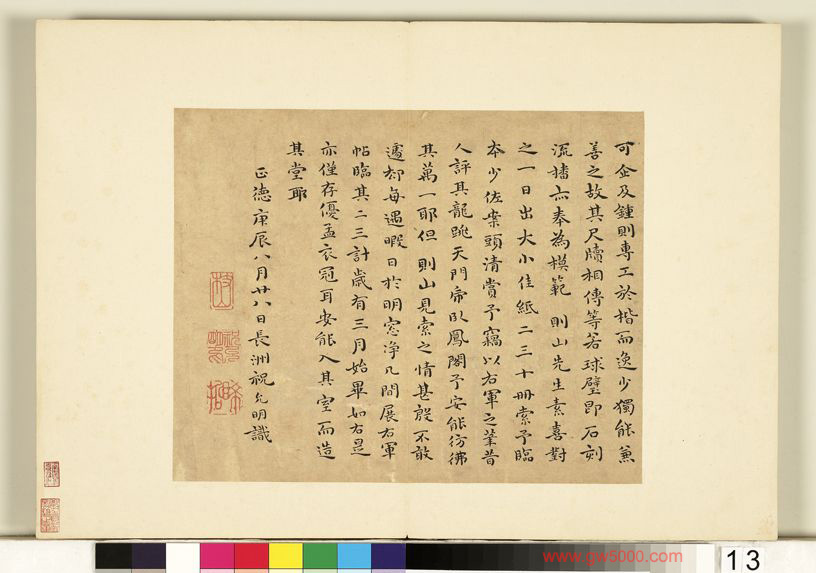 可企及鍾則專工於楷而逸少獨能兼
善之故其尺牘相傳等若球璧即石刻
流播亦奉為模範 則山先生素喜對
之一日出大小佳紙二三十冊索予臨
本少佐案頭清賞予竊以右軍之筆昔
人評其龍跳天門帝臥鳳閣予安能彷彿
其萬一耶但 則山見索之情甚殷不敢
遽却每遇暇日於明窓净几間展右軍
帖臨其二三計歲有三月始畢如右是
亦僅存優孟衣冠耳安能入其室而造
其堂耶
正德庚辰八月廿八日長洲祝允明識
枝山
www.gw5000.com
13